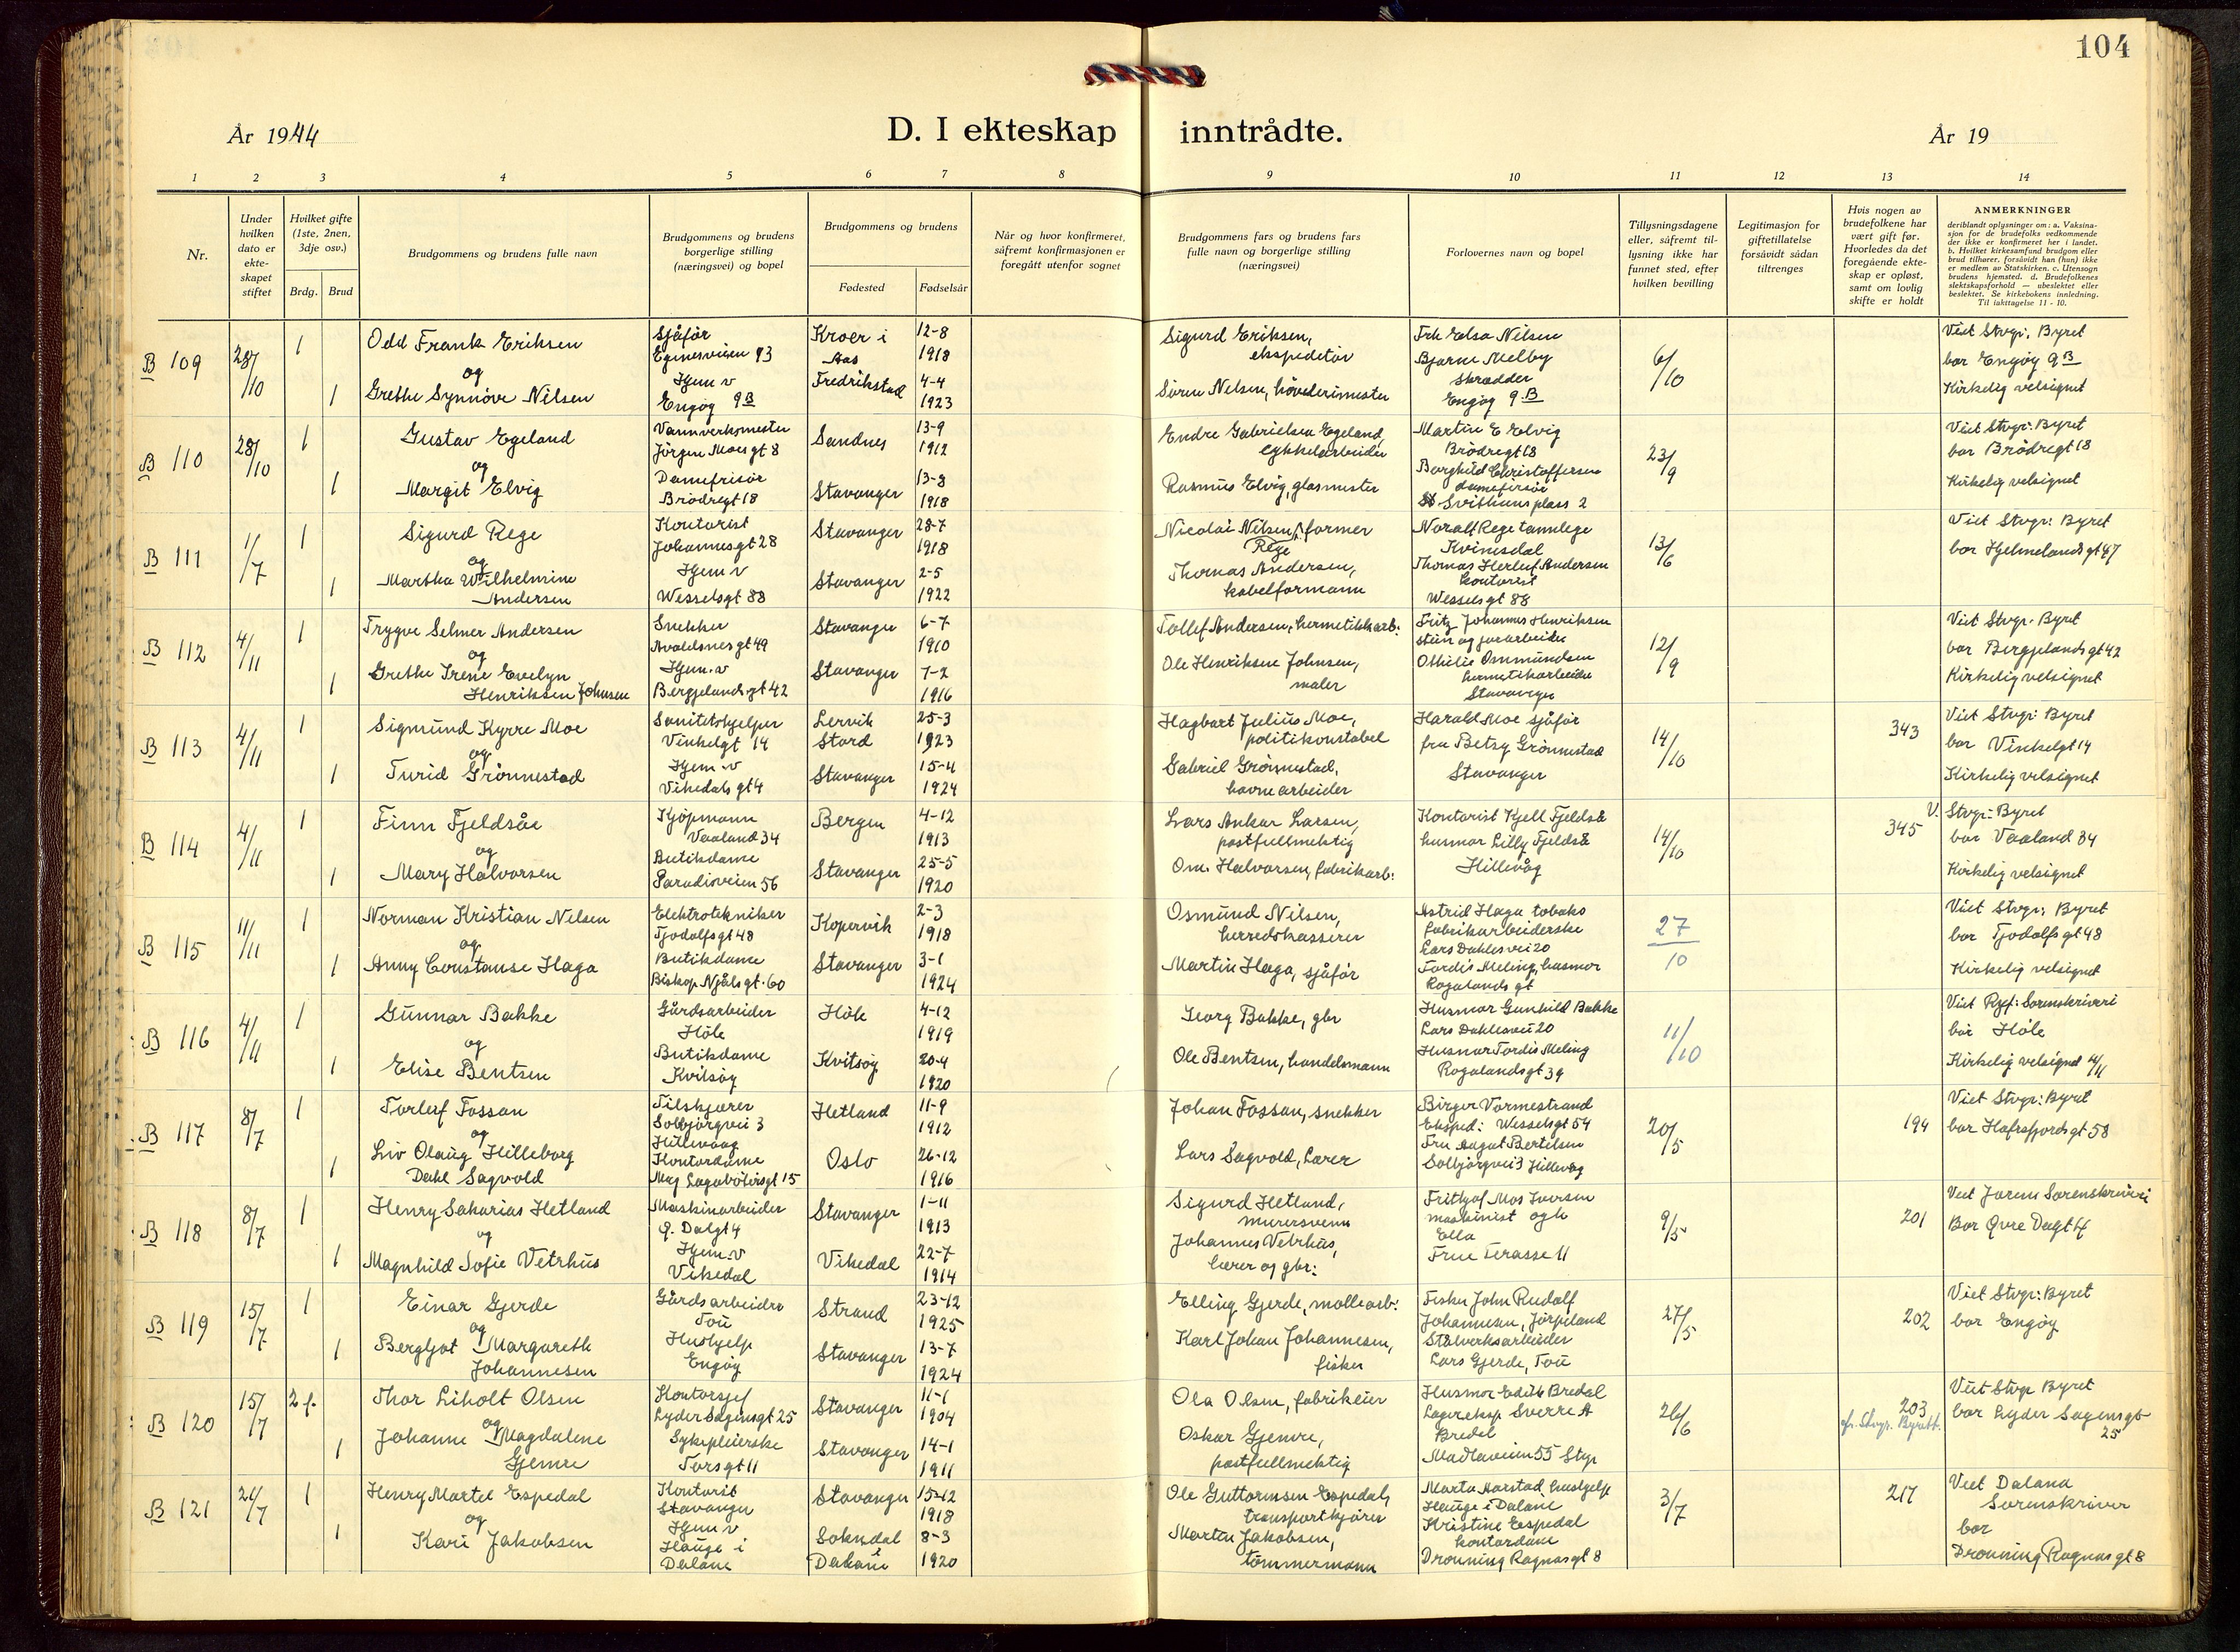 104
År 1944
D. I ekteskap inntrådte.
År 19
1 2 3 4 5 6 7 8 9 10 11 12 13 14
Nr.
Under hvilken dato er ekte-skapet stiftet
Hvilket gifte (1ste, 2nen, 3dje osv.)
Brdg. Brud
Brudgommens og brudens fulle navn
Brudgommens og brudens borgerlige stilling (næringsvei) og bopel
Brudgommens og brudens
Fødested Fødselsår
Når og hvor konfirmeret, såfremt konfirmasjonen er foregått utenfor sognet
Brudgommens fars og brudens fars fulle navn og borgerlige stilling (næringsvei)
Forlovernes navn og bopel
Tillysningsdagene eller, såfremt til-lysning ikke har funnet sted, efter hvilken bevilling
Legitimasjon for giftetillatelse forsåvidt sådan tiltrenges
Hvis nogen av brudefolkene har vært gift før. Hvorledes da det foregående ekte-skap er opløst, samt om lovlig skifte er holdt
ANMERKNINGER
deriblandt oplysninger om: a. Vaksina-sjon for de brudefolks vedkommende der ikke er konfirmeret her i landet. b. Hvilket kirkesamfund brudgom eller brud tilhører, forsåvidt han (hun) ikke er medlem av Statskirken. c. Utensogn brudens hjemsted. d. Brudefolkenes slektskapsforhold — ubeslektet eller beslektet. Se kirkebokens innledning. Til iakttagelse 11 - 10.
B 109 28/10 1 Odd Frank Eriksen sjåfør Egenesveien 93 Kroer i Aas 12-8 1918 Sigurd Eriksen, ekspeditør
og
1 Grethe Synnöve Nilsen Hjem v Engøy 9B Fredrikstad 4-4 1923 Sören Nelsen, hövederimester
Frk Elsa Nilsen Bjarne Melby skrædder Engøy 9B 6/10
Viet Stvgr. Byret bor Engøy 9B Kirkelig velsignet
B 110 28/10 1 Gustav Egeland Vannverksmester Jörgen Moes gt 8 Sandnes 13-9 1912 Endre Gabrielsen Egeland,
og
1 Margit Elvig Damefrisör Brödregt 18 Stavanger 13-8 1918 Rasmus Elvig, glasmester
Martin E Elvig Brödregt 18 Borghild Christoffersen damefrisör St Svithuns plass 2 23/9
Viet Stvgr: Byret bor Brödregt 18 Kirkelig velsignet
B 111 1/7 1 Sigurd Rege Kontorist Johannesgt 28 Stavanger 28-7 1918 Nicolai Nilsen Rege, former
og
1 Martha Wilhelmine Andersen Hjem v Wesselsgt 88 Stavanger 2-5 1922 Thomas Andersen, kabelformann
Noralf Rege tannlege Kvinesdal Thomas Herluf Andersen kontorist Wesselsgt 88 13/6
Viet Stvgr: Byret bor Hjelmelandsgt 47
B 112 4/11 1 Trygve Selmer Andersen Snekker Avaldsnesgt 49 Stavanger 6-7 1910 Tollef Andersen, hermetikkarb:
og
1 Grethe Irene Evelyn Henriksen Johnsen Hjem.v Bergjelandsgt 42 Stavanger 7-2 1916 Ole Henriksen Johnsen, maler
Fritz Johannes Henriksen Othilie Ommundsen hermetikarbeider Stavanger 12/9
Viet Stvgr. Byret bor Bergjelandsgt 42 Kirkelig velsignet
B 113 4/11 1 Sigmund Kyrre Moe Sanitetshjelper Vinkelgt 14 Lervik Stord 25-3 1923 Hagbart Julius Moe, politikonstabel
og
1 Turid Grönnestad Hjem.v Vikedalsgt 4 Stavanger 15-4 1924 Gabriel Grönnestad, havnearbeider
Harald Moe sjåfør fru Betsy Grönnestad Stavanger 14/10 343
Viet Stvgr: Byret bor Vinkelgt 14 Kirkelig velsignet
B 114 4/11 1 Finn Fjeldsåe Kjøpmann Vaaland 34 Bergen 4-12 1913 Lars Ankar Larsen, postfullmektig
og
1 Mary Halvorsen Butikdame Paradisveien 56 Stavanger 25-5 1920 Om. Halvorsen, fabrikarb:
Kontorist Kjell Fjeldså husmor Lilly Fjeldså Hillevåg 14/10 345
V. Stvgr: Byret bor Vaaland 34 Kirkelig velsignet
B 115 11/11 1 Norman Kristian Nilsen Elektrotekniker Tjodolfsgt 48 Kopervik 2-3 1918 Osmund Nilsen, herredskasserer
og
1 Anny Constanse Haga Butikdame Biskop Njåls gt. 60 Stavanger 3-1 1924 Martin Haga, sjåför
Astrid Haga tobaks fabrikarbeiderske Lars Dahlesvei 20 Tordis Meling, husmor Rogalandsgt 27/10
Viet Stvgr: Byret bor Tjodolfsgt 48 Kirkelig velsignet
B 116 4/11 1 Gunnar Bakke Gårdsarbeider Höle Höle 4-12 1919 Georg Bakke, gbr
og
1 Elise Bentsen Butikdame Kvitsöy Kvitsöy 20-4 1920 Ole Bentsen, handelsmann
Husmor Gunhild Bakke Lars Dahlesvei 20 Husmor Tordis Meling Rogalandsgt 39 11/10
Viet Ryf: Sorenskriveri bor Höle Kirkelig velsignet 4/11
B 117 8/7 1 Torleif Fossan Tilskjærer Solbjörgvei 3 Hillevaag Hetland 11-9 1912 Johan Fossan, snekker
og
1 Liv Olaug Hilleborg Dahl Sagvold Kontordame Mag Lagabötersgt 15 Oslo 26-12 1916 Lars Sagvold, Lærer
Birger Vormestrand Eksped: Wesselsgt 54 Fru Aagot Bertelsen Solbjörgvei 3 Hillevåg 20/5 194
Viet Stvgr: Byret bor Hafrsfjordsgt 58
B 118 8/7 1 Henry Sakarias Hetland Maskinarbeider Ø. Dalgt 4 Stavanger 1-11 1913 Sigurd Hetland, murersvenn
og
1 Magnhild Sofie Vetrhus Hjem.v Vikedal Vikedal 22-7 1914 Johannes Vetrhus, lærer og gbr:
Frithjof Mos Iversen maskinist og h Ella Frue Terasse 11 9/5 201
Viet Jæren Sorenskriveri Bor Øvre Dagt 4
B 119 15/7 1 Einar Gjerde Gårdsarbeider Tou Strand 23-12 1925 Elling Gjerde, mollearb:
og
1 Bergljot Margareth Johannesen Hushjelp Engøy Stavanger 13-7 1924 Karl Johan Johannesen, fisker
Fisker John Rudolf Johannesen, Jörpeland Stålverksarbeider Lars Gjerde, Tou 27/5 202
Viet Stvgr: Byret bor Engøy
B 120 15/7 2 f. Thor Liholt Olsen Kontorsjef Lyder Sagensgt 25 Stavanger 11-1 1904 Ola Olsen, fabrikeier
og
1 Johanne Magdalene Gjemre Sykepleierske Torsgt 11 Stavanger 14-1 1911 Oskar Gjemre, postfullmektig
Husmor Edith Bredal Lagereksp Sverre A Bredal Madlaveien 55 Stvgr 26/6 203
Viet Stvgr Byret bor Lyder Sagensgt 25
B 121 21/7 1 Henry Martel Espedal Kontorist Stavanger Stavanger 15-12 1918 Ole Guttormsen Espedal, transportkjörer
og
1 Kari Jakobsen Hjem v Hauge i Dalane Sokndal i Dalane 8-3 1920 Martin Jakobsen, tömmermann
Marta Aarstad hushjelp Hauge i Dalane Kristine Espedal kontordame Dronning Ragnasgt 8 3/7 217
Viet Dalana Sorenskriver bor Dronning Ragnasgt 8